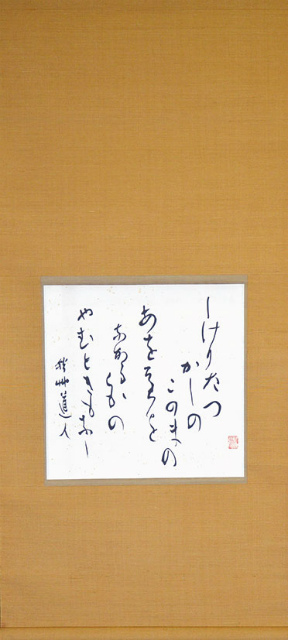 しけりたつ
かしの
このまの
あをそらを
なかるゝ
くもの
やむときもなし
秋艸道人